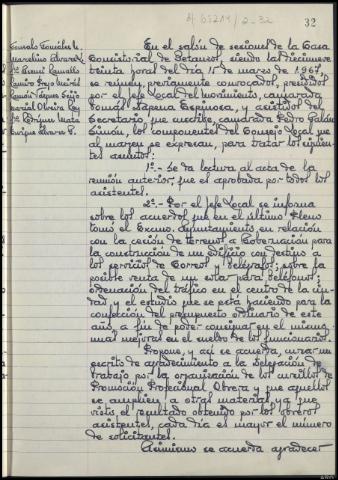 32
Gonzalo González
Marcelino Alvarez
Ramón Tapena
Enrique Álvarez P.
En el salón de sesiones de la Casa
Consistorial de Betanzos, siendo las diecinueve
treinta horas del día 15 de marzo de 1967,
se reunen, previamente convocados, presididos
por el Jefe Local del movimiento, camarada
Tomás Dapena Espinosa, y asistidos del
Secretario que suscribe, camarada Pedro Galán
Simón, los componentes del Consejo Local que
al margen se expresan, para tratar los siguien-
tes asuntos:
1º.- Se da lectura al acta de la
reunión anterior, que es aprobada por todos los
asistentes.
2º.- Por el Jefe Local se informa
sobre los acuerdos que en el último Pleno
tomó el Excmo. Ayuntamiento en relación
con la cesión de terrenos a Gobernación para
la construcción de un edificio con destino a
los servicios de Correos y Telégrafos; sobre la
posible renta de un solar para Teléfonos;
ordenación del tráfico en el centro de la ciu-
dad y el estudio que se está haciendo para la
confección del presupuesto ordinario de este
año, a fin de poder consignar en el mismo
mejoras en el sueldo de los funcionarios.
Propone, y así se acuerda, cursar un
escrito de agradecimiento a la Delegación de
Trabajo por la organización de los cursillos de
Promoción Profesional Obrera y que aquellos
se amplíen a otras materias, ya que
visto el resultado obtenido por los obreros
asistentes, cada día es mayor el número
de solicitantes.
Asimismo se acuerda agradecer